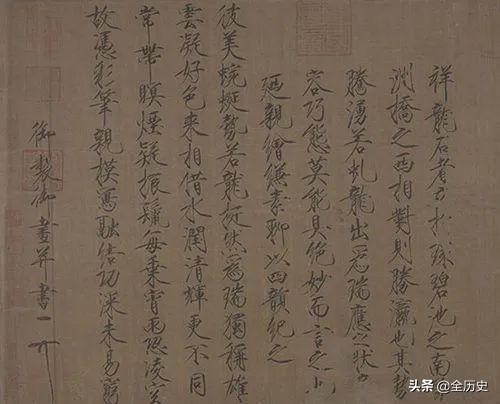 祥龍石者立於環碧池之南
洲橋之西相對則勝瀛也其勢
騰湧若虬龍出為瑞應之狀奇
容巧態莫能具絕妙而言之也
廼親繪縑素聊以四韻紀之
彼美蜿蜒勢若龍挺然為瑞獨稱雄
雲凝好色來相借水潤清輝更不同
常帶暝煙疑振鬣每乘宵雨恐凌空
故憑彩筆親模寫融結功深未易窮
御製御畫并書
头条 @全历史